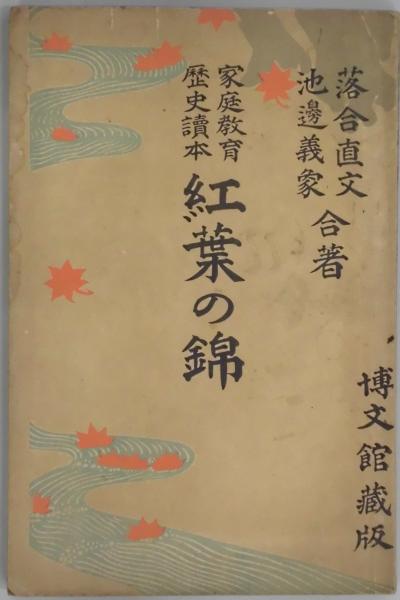 落合直文
池邊義象
合著
家庭教育
歷史讀本
紅葉の錦
博文館藏版